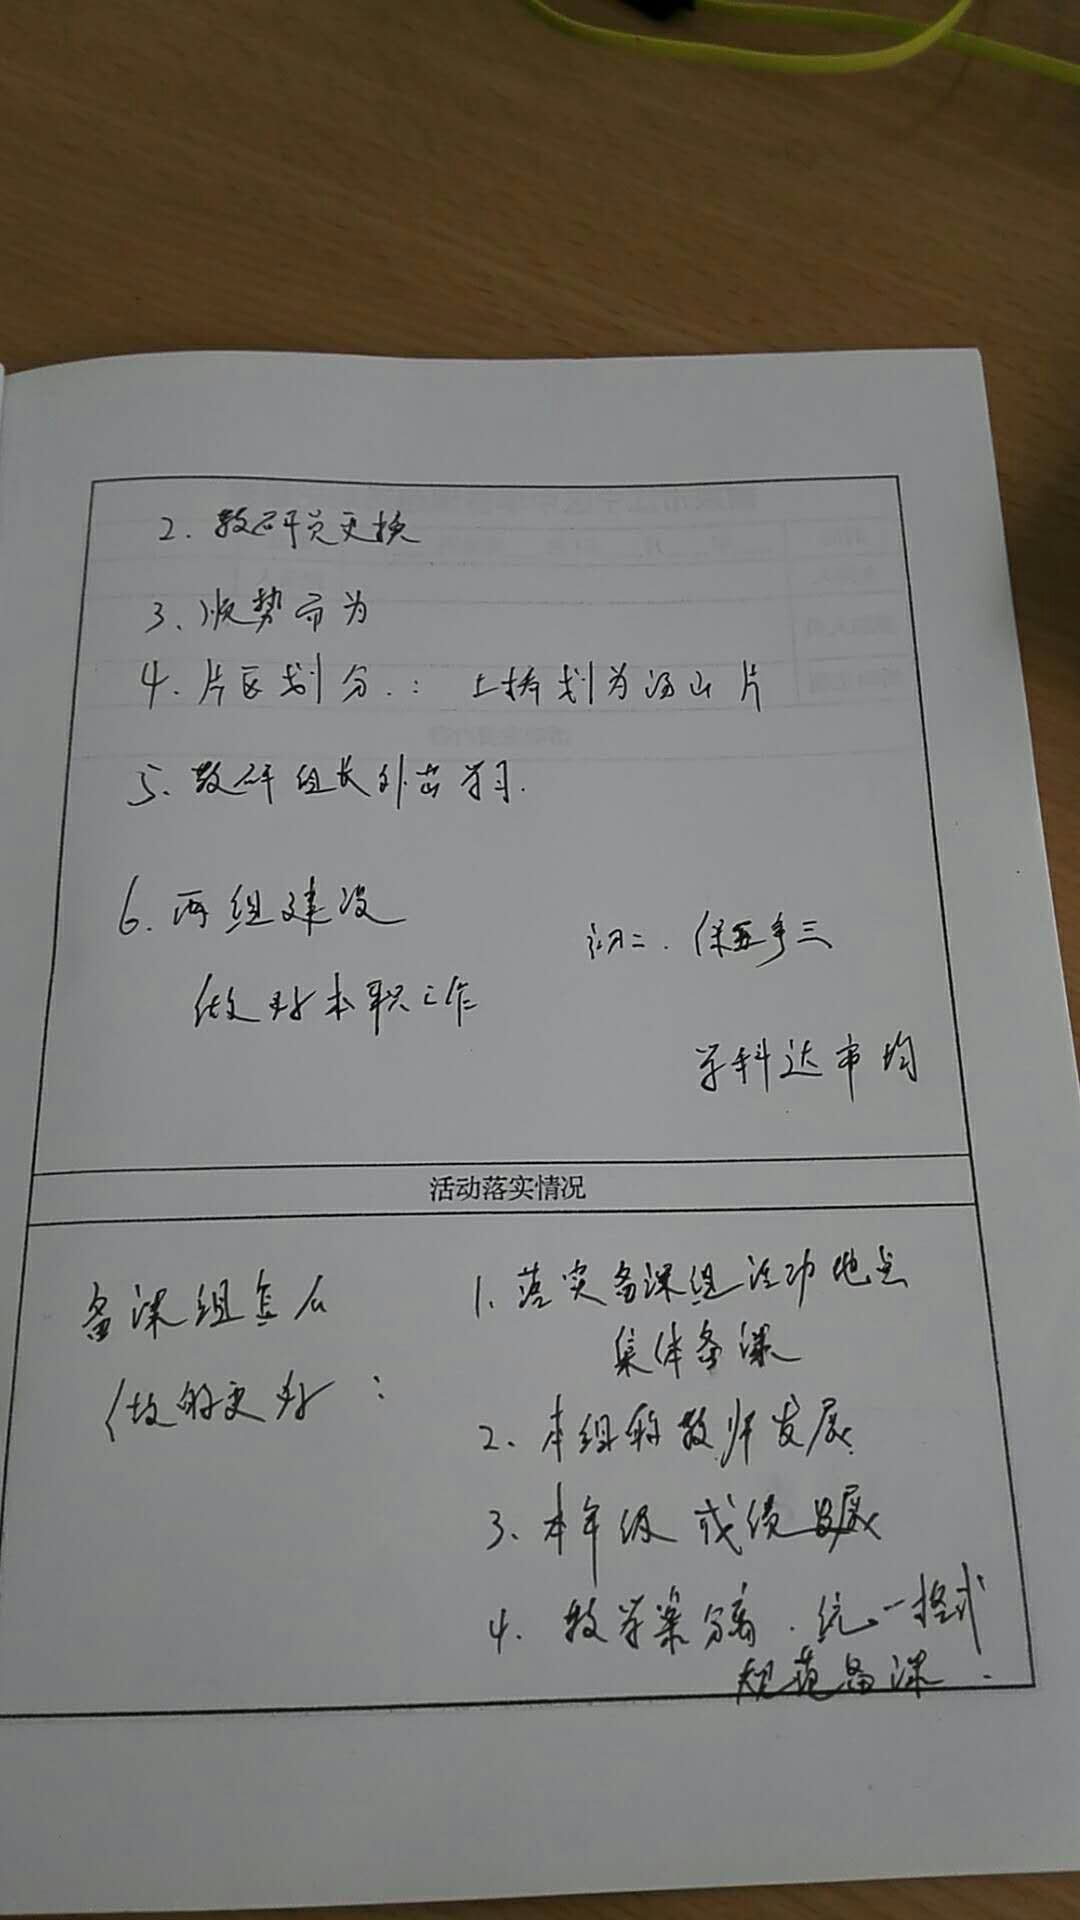 2. 教研员更换
3、顺势而为
4. 片区划分: 上桥划为汤山片
5. 教研组长外出学习.
6. 两组建设
初二. 保五争三
做好本职工作
学科达市均
活动落实情况
备课组怎么
做的更好:
1. 落实备课组活动地点
集体备课
2. 本组的教师发展
3、本年级成绩发展
4. 教学案分离. 统一格式
规范备课.